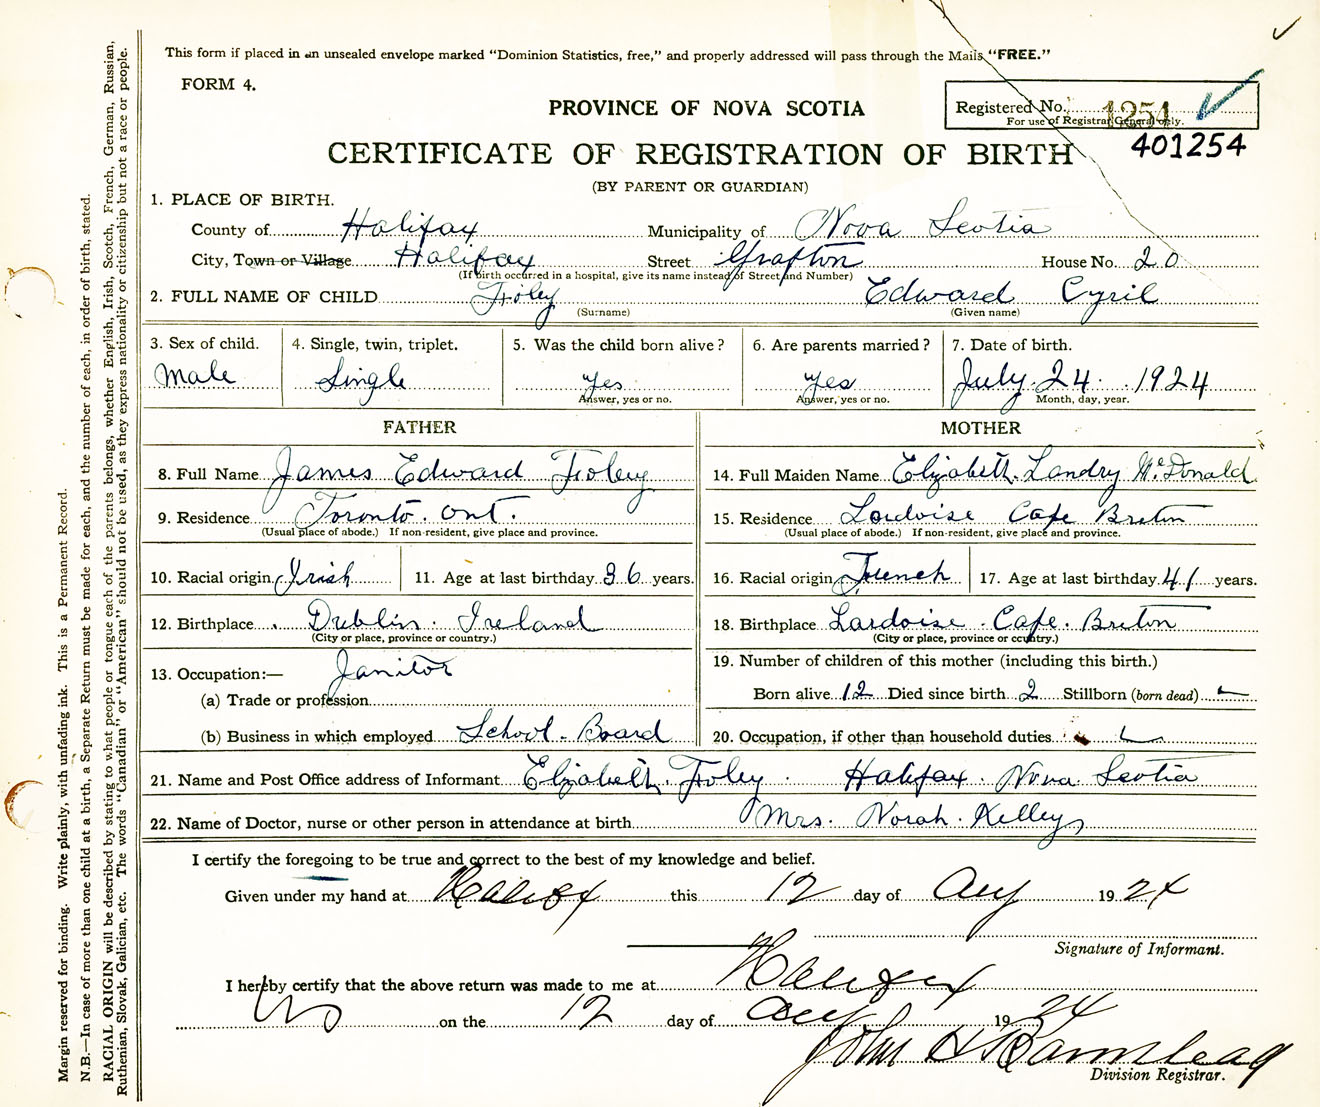 This form if placed in an unsealed envelope marked "Dominion Statistics, free," and properly addressed will pass through the Mails "FREE."
FORM 4.
PROVINCE OF NOVA SCOTIA
Registered No. 1254
For use of Registrar General only.
401254
CERTIFICATE OF REGISTRATION OF BIRTH
(BY PARENT OR GUARDIAN)
1. PLACE OF BIRTH.
County of Halifax Municipality of Nova Scotia
City, Town or Village Halifax Street Grafton House No. 20
(If birth occurred in a hospital, give its name instead of Street and Number)
2. FULL NAME OF CHILD Foley Edward Cyril
(Surname) (Given name)
3. Sex of child. 4. Single, twin, triplet. 5. Was the child born alive? 6. Are parents married? 7. Date of birth.
Male Single yes yes July 24 1924
Answer, yes or no. Answer, yes or no. Month, day, year.
FATHER MOTHER
8. Full Name James Edward Foley 14. Full Maiden Name Elizabeth Landry McDonald
9. Residence Toronto. Ont. 15. Residence Lardoise Cape Breton
(Usual place of abode.) If non-resident, give place and province. (Usual place of abode.) If non-resident, give place and province.
10. Racial origin Irish 11. Age at last birthday 36 years. 16. Racial origin French 17. Age at last birthday 41 years.
12. Birthplace Dublin. Ireland 18. Birthplace Lardoise. Cape. Breton
(City or place, province or country.) (City or place, province or country.)
13. Occupation:— Janitor 19. Number of children of this mother (including this birth.)
(a) Trade or profession Born alive 12 Died since birth 2 Stillborn (born dead)
(b) Business in which employed School Board 20. Occupation, if other than household duties
21. Name and Post Office address of Informant Elizabeth Foley. Halifax. Nova Scotia
22. Name of Doctor, nurse or other person in attendance at birth Mrs. Norah. Kelley
I certify the foregoing to be true and correct to the best of my knowledge and belief.
Given under my hand at Halifax this 12 day of Aug 1924
Signature of Informant.
I hereby certify that the above return was made to me at Halifax
on the 12 day of Aug 1924
John
Division Registrar.
Margin reserved for binding. Write plainly, with unfading ink. This is a Permanent Record.
N.B.—In case of more than one child at a birth, a Separate Return must be made for each, and the number of each, in order of birth, stated.
RACIAL ORIGIN will be described by stating to what people or tongue each of the parents belongs, whether English, Irish, Scotch, French, German, Russian,
Ruthenian, Slovak, Galician, etc. The words "Canadian" or "American" should not be used, as they express nationality or citizenship but not a race or people.